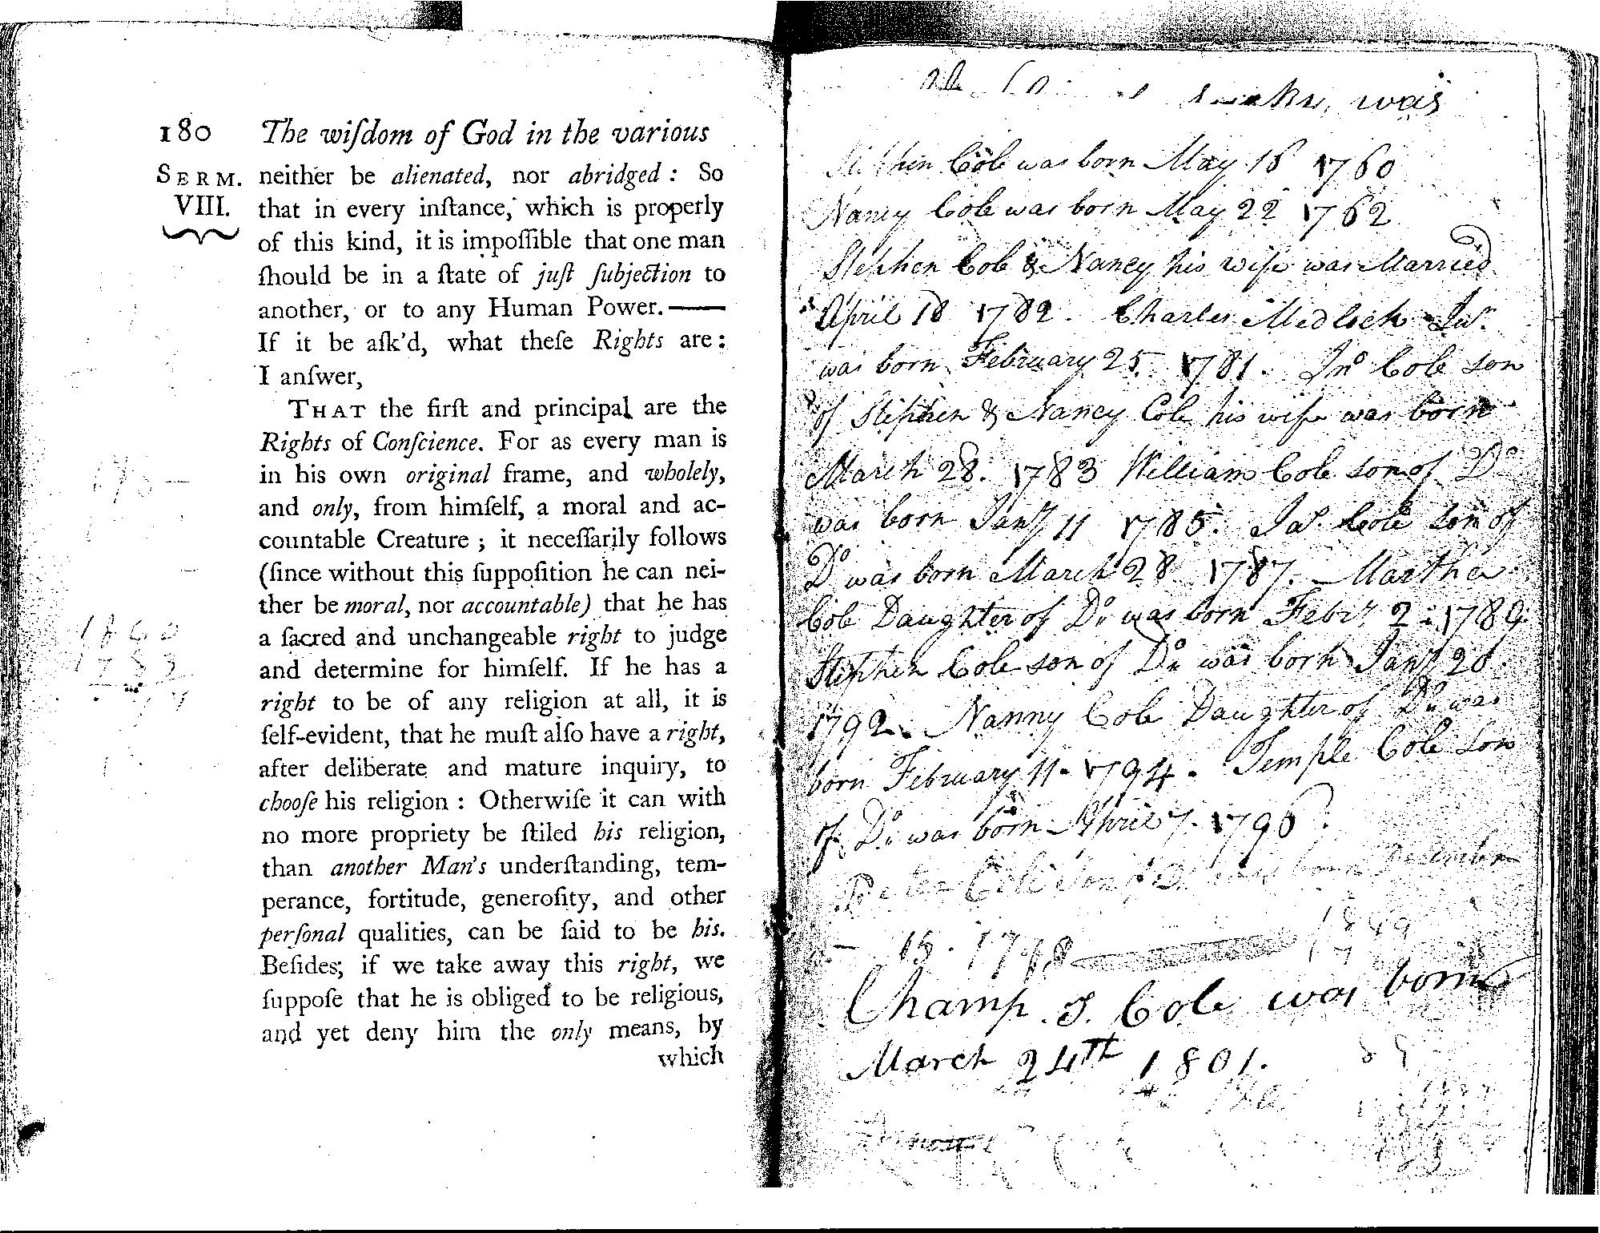 180 The wiſdom of God in the various
SERM. neither be alienated, nor abridged : So
VIII. that in every inſtance, which is properly
of this kind, it is impoſſible that one man
ſhould be in a ſtate of juſt ſubjection to
another, or to any Human Power.——
If it be aſk'd, what theſe Rights are :
I anſwer,
THAT the firſt and principal are the
Rights of Conſcience. For as every man is
in his own original frame, and wholely,
and only, from himſelf, a moral and ac-
countable Creature ; it neceſſarily follows
(ſince without this ſuppoſition he can nei-
ther be moral, nor accountable) that he has
a ſacred and unchangeable right to judge
and determine for himſelf. If he has a
right to be of any religion at all, it is
ſelf-evident, that he muſt alſo have a right,
after deliberate and mature inquiry, to
chooſe his religion : Otherwiſe it can with
no more propriety be ſtiled his religion,
than another Man's underſtanding, tem-
perance, fortitude, generoſity, and other
perſonal qualities, can be ſaid to be his.
Beſides; if we take away this right, we
ſuppoſe that he is obliged to be religious,
and yet deny him the only means, by
which
was
Stephen Cole was born May 16 1760
Nancy Cole was born May 22 1762
Stephen Cole & Nancy his wife was Married
April 18 1782. Charles Medlock
was born February 25. 1781. Jno Cole son
of Stephen & Nancy Cole his wife was born
March 28. 1783 William Cole son of Do
was born Jany 11 1785. Jas. Cole son of
Do was born March 28 1787. Martha
Cole Daughter of Do was born Febry 2 1789.
Stephen Cole son of Do was born Jany 20
1792. Nanny Cole Daughter of Do was
born February 11. 1794. Temple Cole son
of Do was born April 7. 1796.
Peter Cole Son of Do was born December
15. 1798
Champ. S. Cole was born
March 24th 1801.